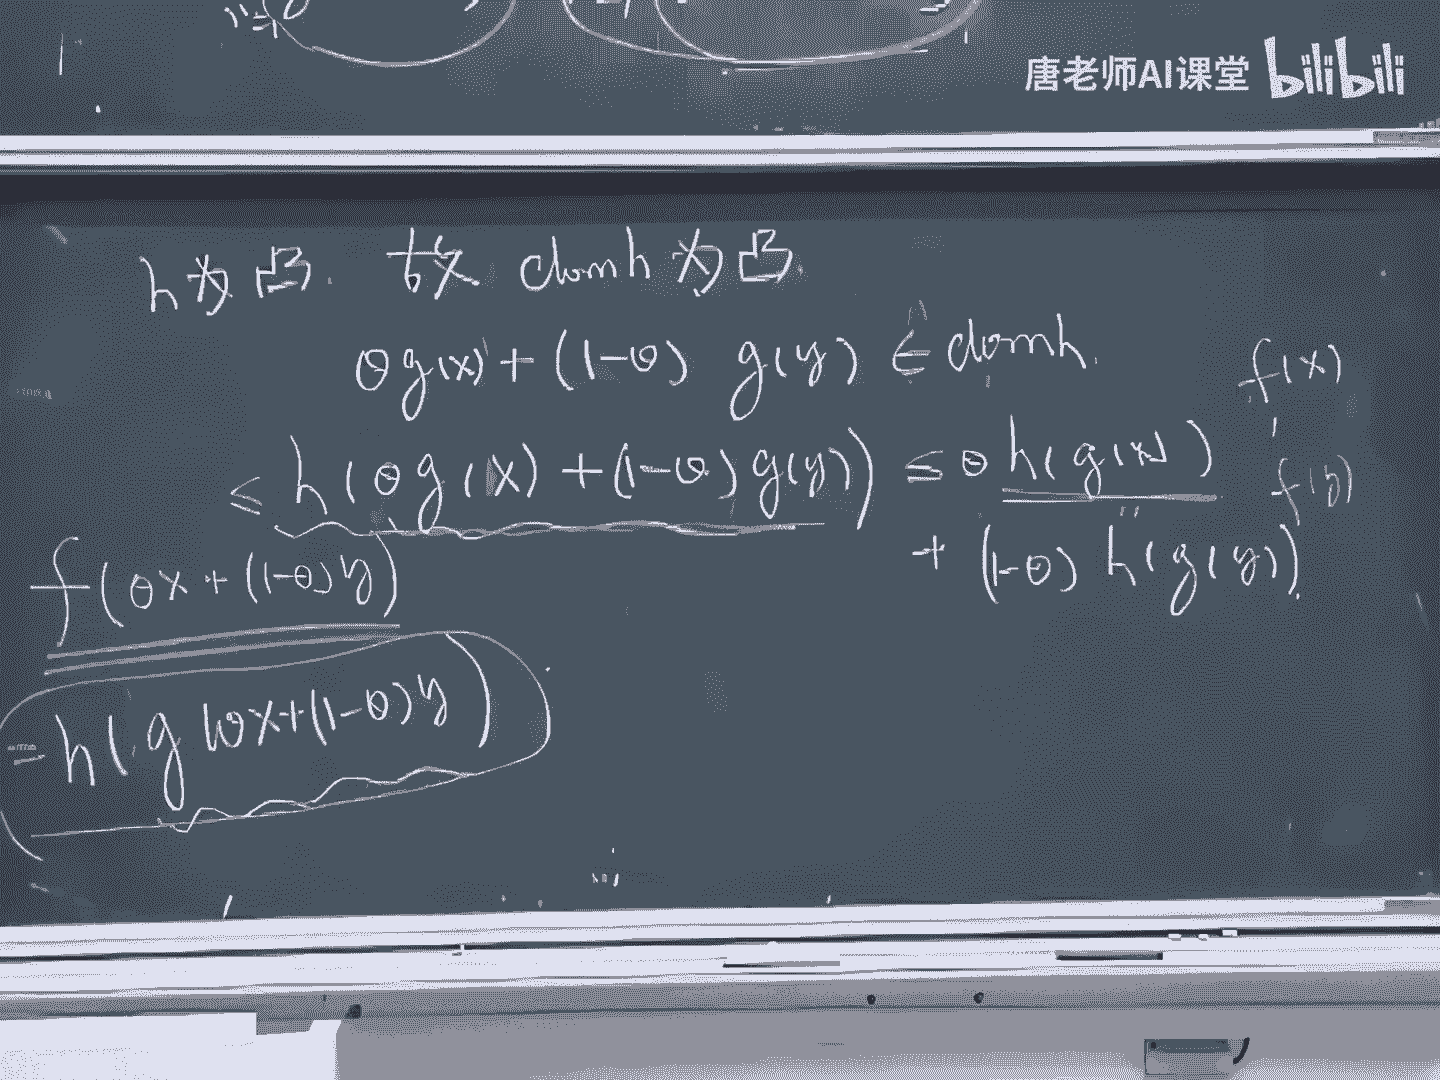 唐老师AI课堂 bilibili
h为凸. 故 domh 为凸.
θg(x) + (1-θ) g(y) ∈ domh.
f(x)
≤ h(θg(x) + (1-θ)g(y)) ≤ θ h(g(x))
f(y)
+ (1-θ) h(g(y)).
f(θx + (1-θ)y)
= h(g(θx+(1-θ)y)